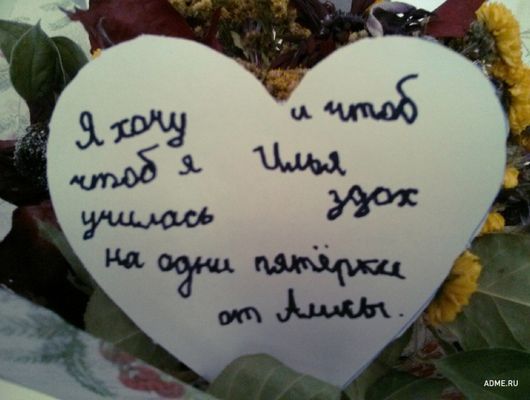 Я хочу и чтоб
чтоб я Илья
училась здох
на одни пятёрки
от Алисы.
ADME.RU